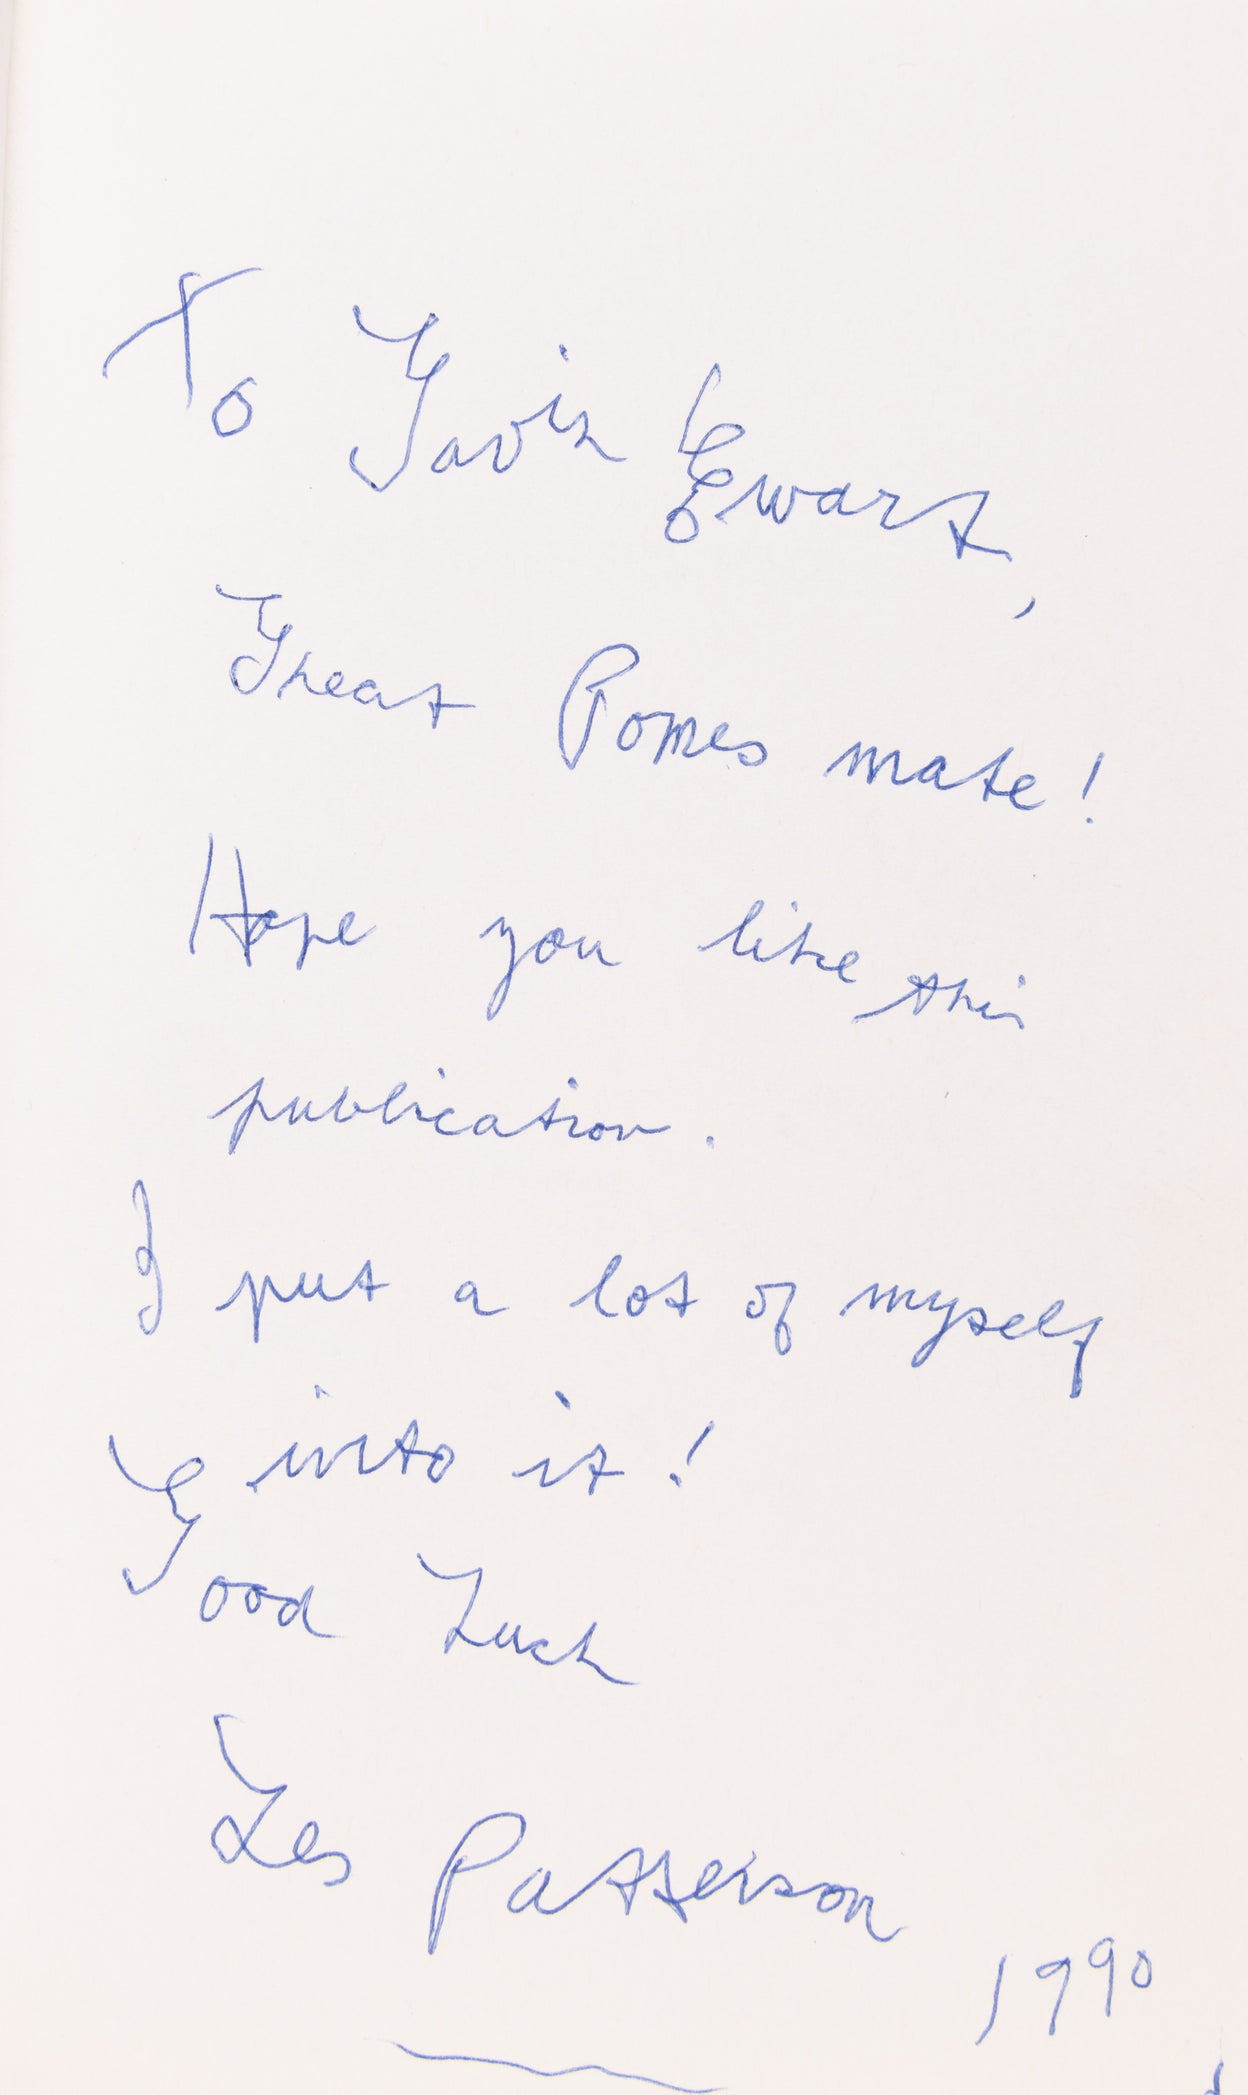 To Gavin Ewart,
Great Pomes mate!
Hope you like this
publication.
I put a lot of myself
into it!
Good Luck
Les Patterson
1990